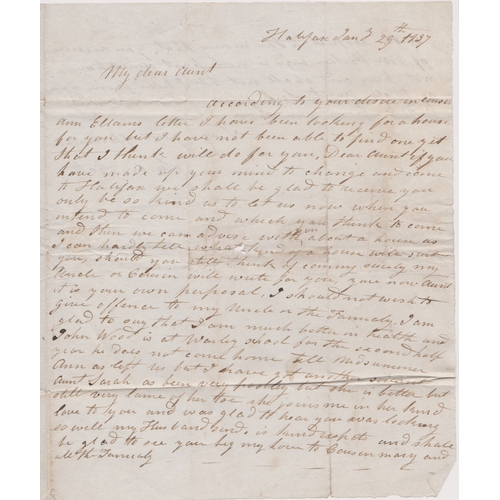 Halifax Jany 29th 1837
My dear Aunt
according to your desire in cousin
Ann Ellams letter I have been looking for a house
for you but I have not been able to find one yet
that I think will do for you, Dear Aunt if you
have made up your mind to change and come
to Halifax we shall be glad to receive you
only be so kind as to let us now where you
intend to come and which you think to come
and then we can advise with you about a house as
I can hardly tell what kind of a house will suit
you, should you still think of coming surely my
Uncle or Cousin will write for you, you now Aunt
it is your own perposal, I should not wish to
give offence to my Uncle or the Fameley, I am
glad to say that I am much better in health and
John Wood is at Warley school for the second half
year he does not come home till Midsummer
Ann as left us but I have got another servant
Aunt Sarah as been very poorley but she is better but
still very lame of her toe she joins me in her kind
love to you and was glad to hear you was looking
so well my Husband send is kind respets and shall
be glad to see you big my Love to Cousin mary and
all the Fameley